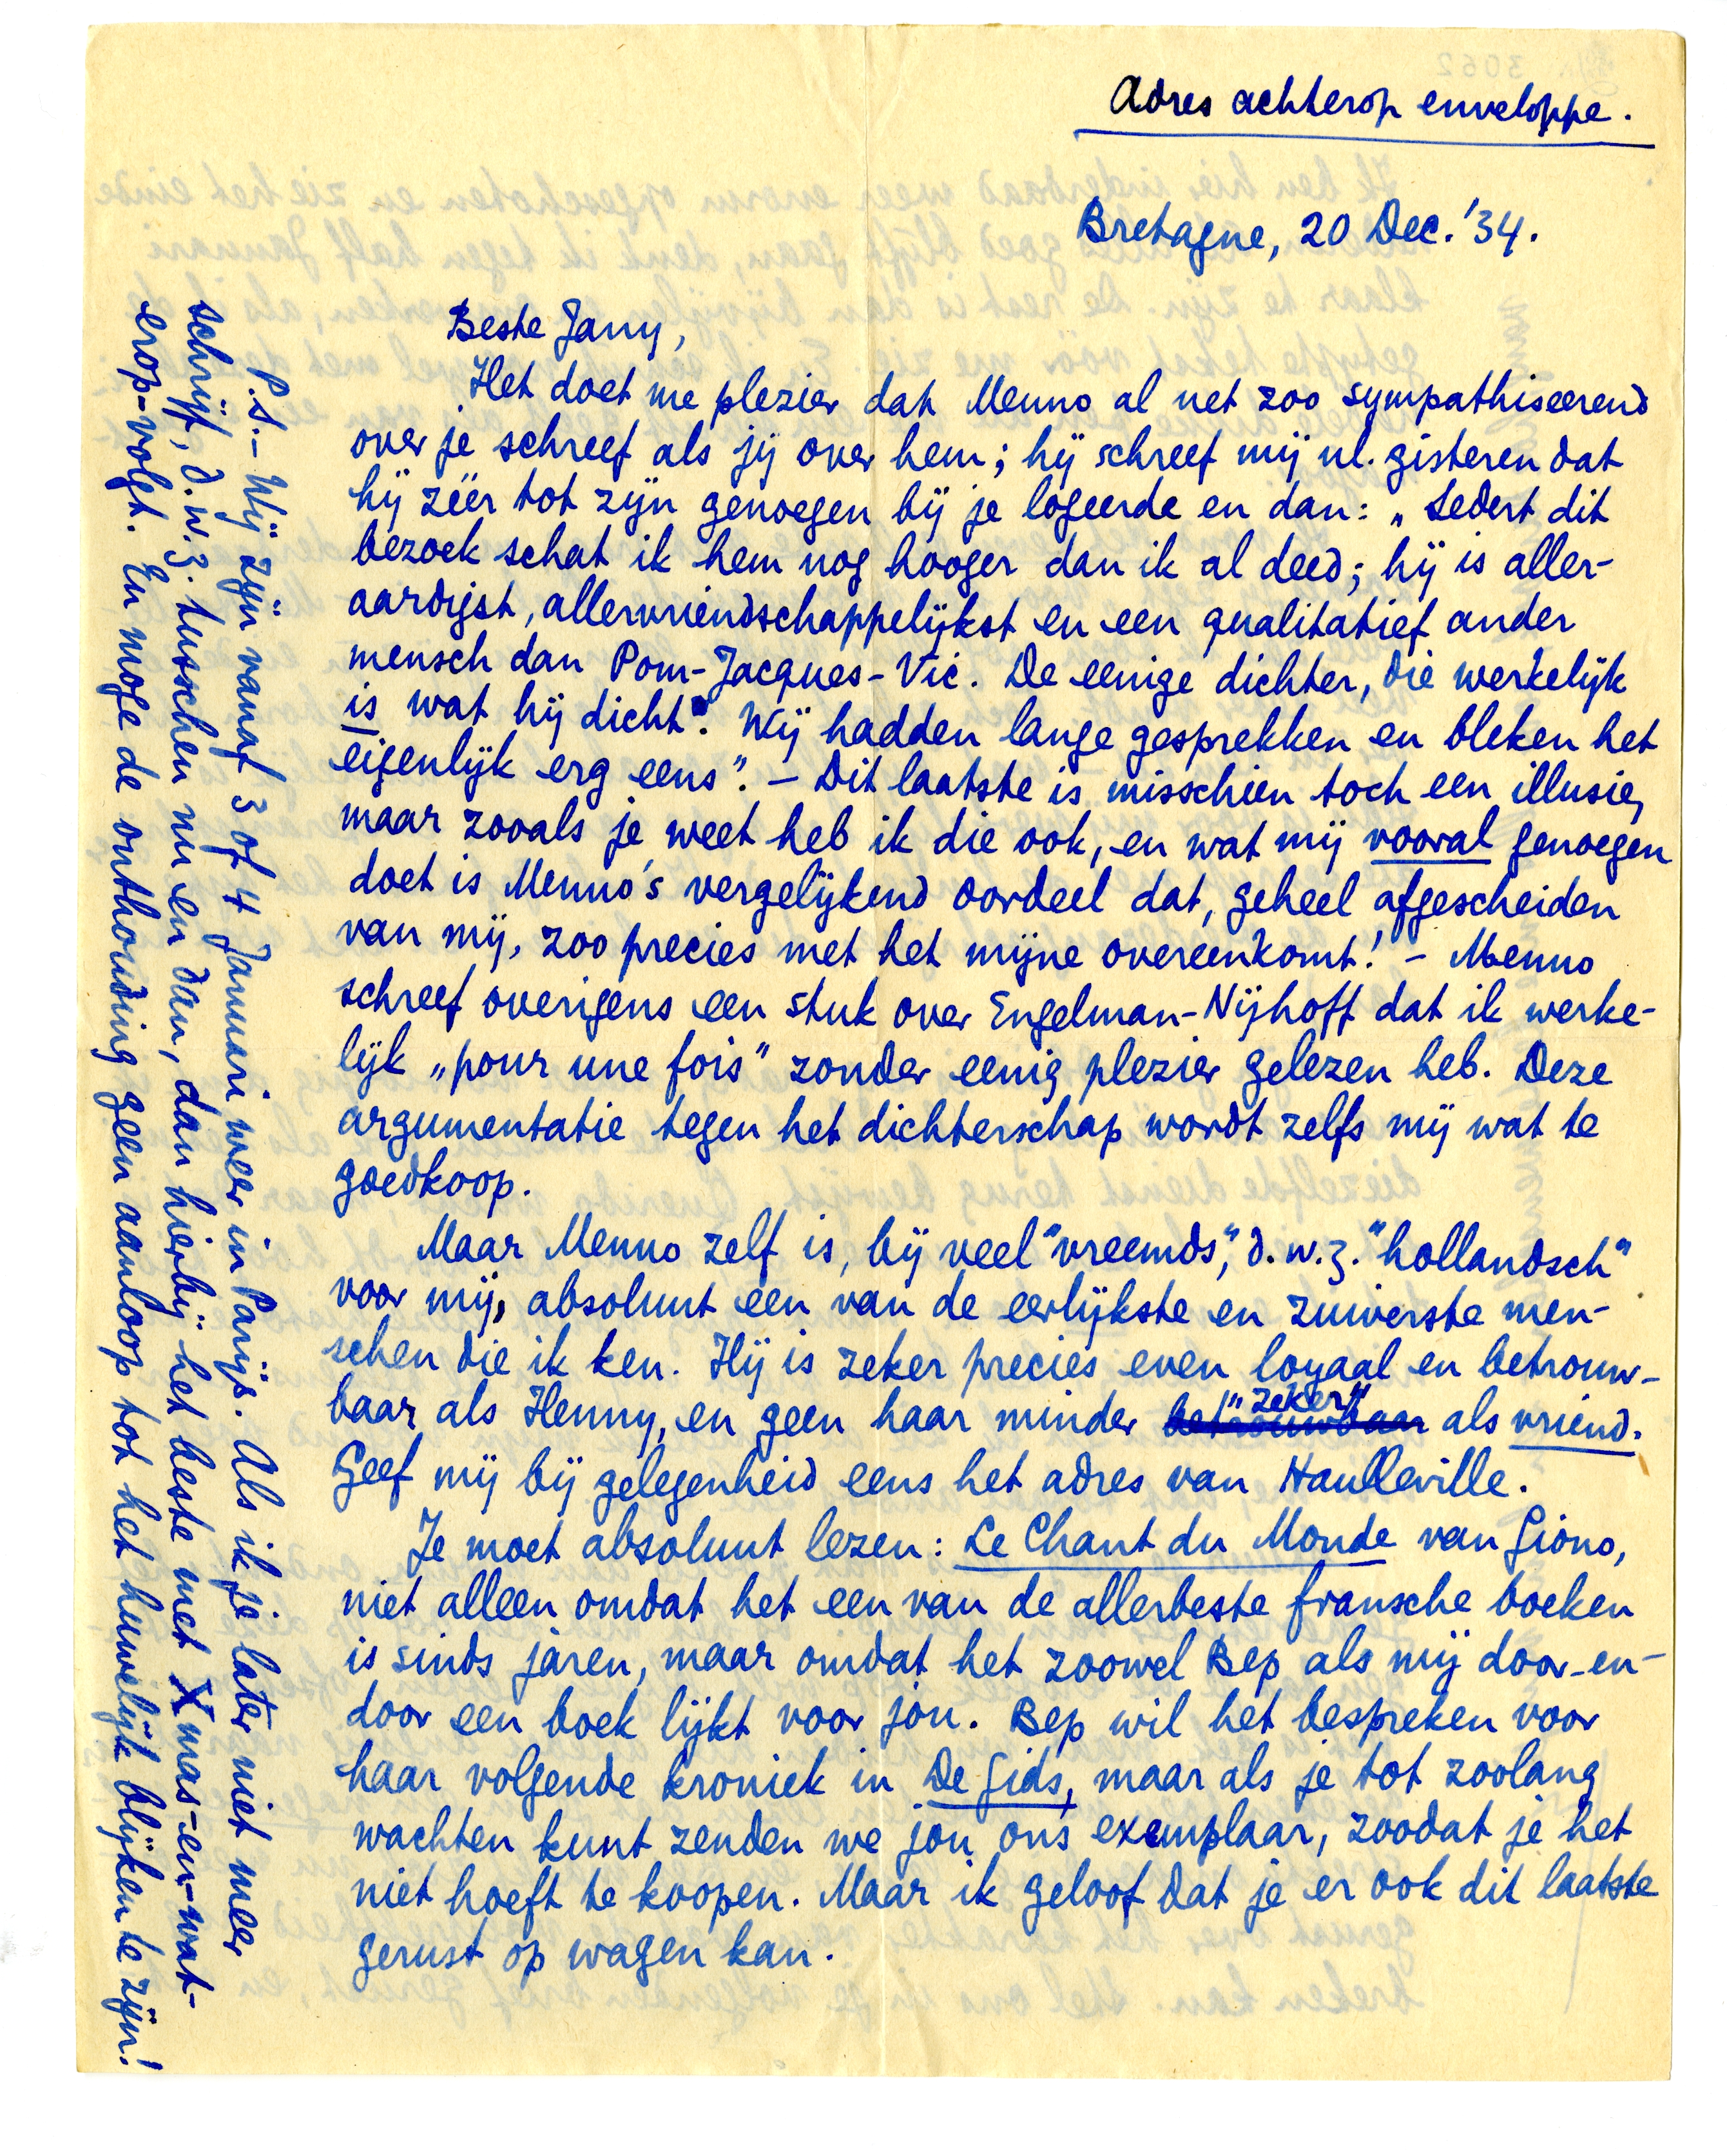 Adres achterop enveloppe.
Bretagne, 20 Dec. '34.
Beste Jany,
Het doet me plezier dat Menno al net zoo sympathiseerend
over je schreef als jij over hem; hij schreef mij nl. gisteren dat
hij zéér tot zijn genoegen bij je logeerde en dan: „Sedert dit
bezoek schat ik hem nog hooger dan ik al deed; hij is aller-
aardigst, allervriendschappelijkst en een qualitatief ander
mensch dan Pom-Jacques-Vic. De eenige dichter, die werkelijk
is wat hij dicht. Wij hadden lange gesprekken en bleken het
eigenlijk erg eens". – Dit laatste is misschien toch een illusie,
maar zooals je weet heb ik die ook, en wat mij vooral genoegen
doet is Menno's vergelijkend oordeel dat, geheel afgescheiden
van mij, zoo precies met het mijne overeenkomt! – Menno
schreef overigens een stuk over Engelman-Nijhoff dat ik werke-
lijk „pour une fois" zonder eenig plezier gelezen heb. Deze
argumentatie tegen het dichterschap wordt zelfs mij wat te
goedkoop.
Maar Menno zelf is, bij veel "vreemds", d.w.z. "hollandsch"
voor mij, absoluut een van de eerlijkste en zuiverste men-
schen die ik ken. Hij is zeker precies even loyaal en betrouw-
baar als Henny, en geen haar minder betrouwbaar "zeker" als vriend.
Geef mij bij gelegenheid eens het adres van Haulleville.
Je moet absoluut lezen: Le Chant du Monde van Giono,
niet alleen omdat het een van de allerbeste fransche boeken
is sinds jaren, maar omdat het zoowel Bep als mij door-en-
door een boek lijkt voor jou. Bep wil het bespreken voor
haar volgende kroniek in De Gids, maar als je tot zoolang
wachten kunt zenden we jou ons exemplaar, zoodat je het
niet hoeft te koopen. Maar ik geloof dat je er ook dit laatste
gerust op wagen kan.
P.S. – Wij zijn vanaf 3 of 4 Januari weer in Parijs. Als ik je later niet meer
schrijf, d.w.z. tusschen nu en dan, dan hierbij het beste met Xmas-en-wat-
erop-volgt. En moge de onthouding geen aanloop tot het huwelijk blijken te zijn!